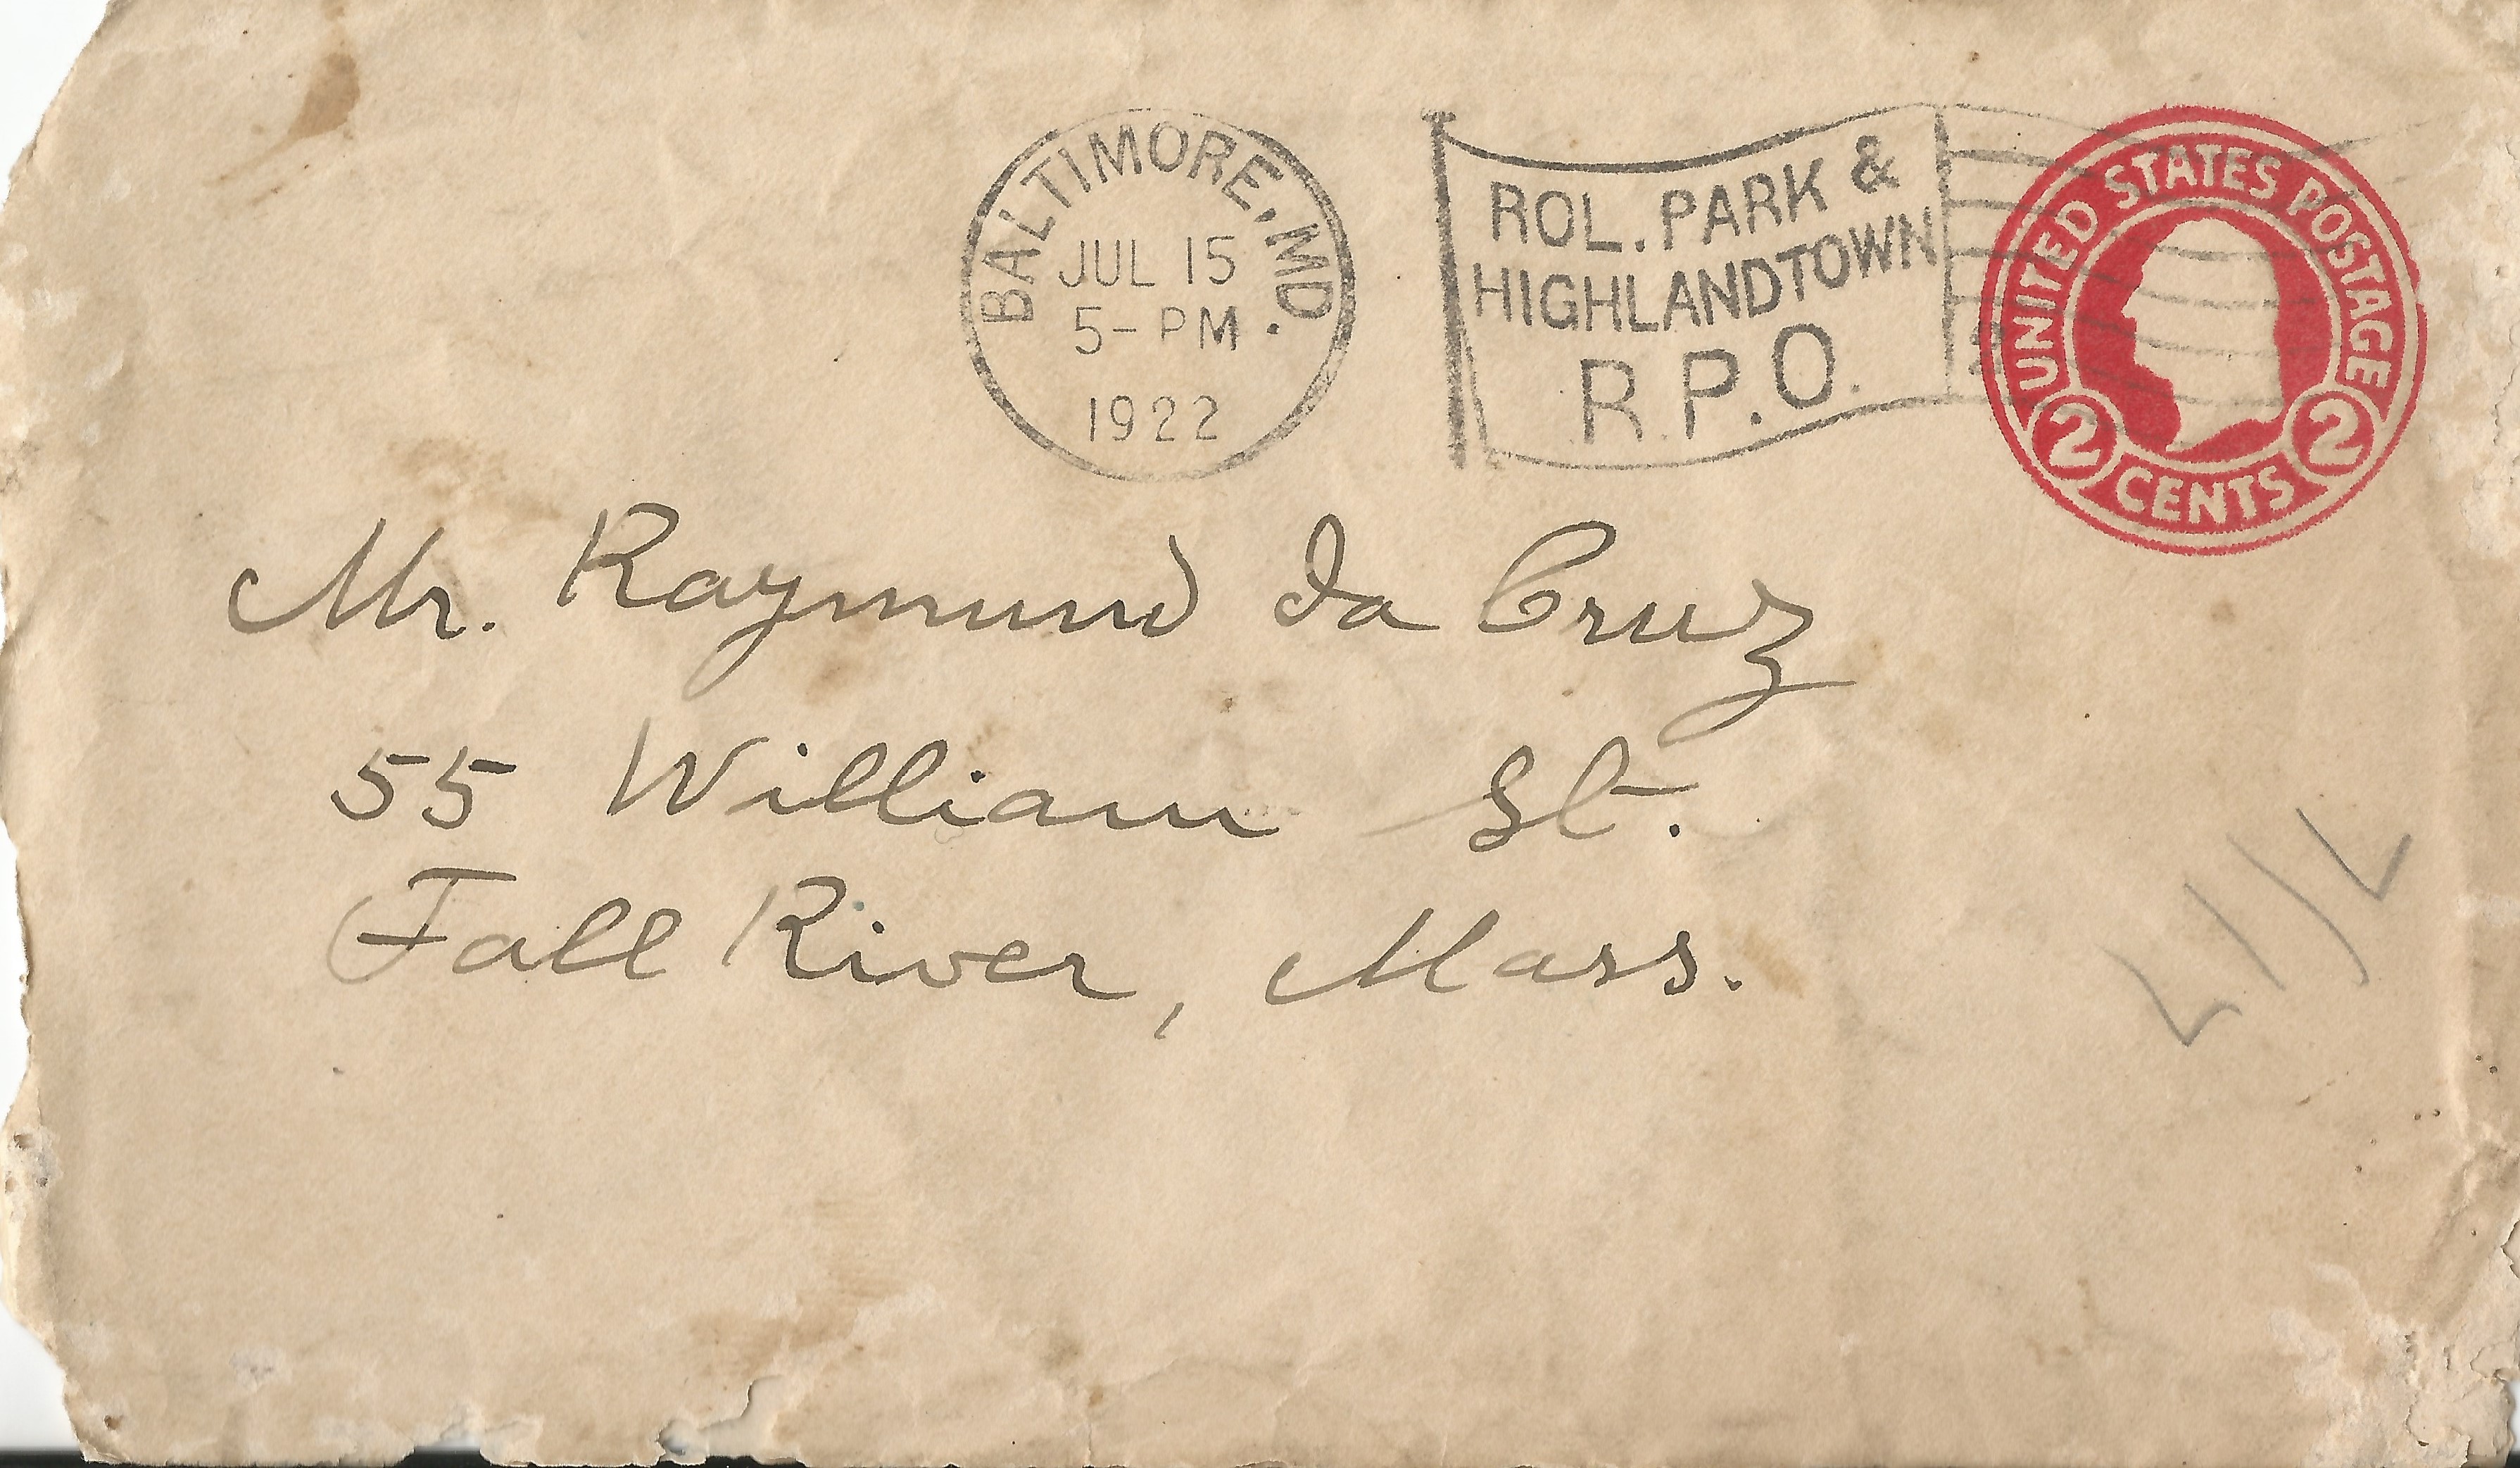 BALTIMORE, MD.
JUL 15
5-PM
1922
ROL. PARK &
HIGHLANDTOWN
R.P.O.
UNITED STATES POSTAGE
2 CENTS 2
Mr. Raymund da Cruz
55 William St.
Fall River, Mass.